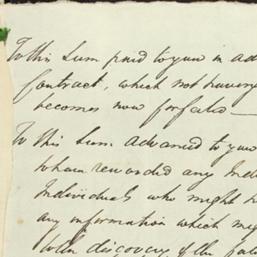 To this Sum paid to you in ad
Contract, which not having
becomes now forfated
To this Sum advanced to you
whom rewarded any Ind
Individuals who might h
any information which mig
to the discovery of the